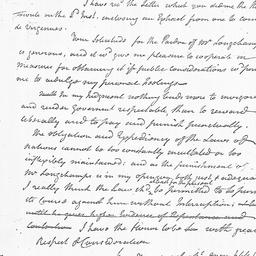 I have rec.^d the Letter which you did me the
favor to write on the 6th Inst. enclosing an Extract from one to count
de Vergennes.
Your Solicitude for the Pardon of M^r Longchamps
is generous, and it w^d give me pleasure to cooperate in
measures for obtaining it if public considerations w^d permit
me to indulge my personal Inclination
in my Judgment nothing tends more to invigorate
and render Government respectable than to reward
liberally and to pay and punish punctually.
The obligation and Expediency of the Laws of
nations cannot to be too constantly inculcated or too
inflexibly maintained: and as the punishment of
M^r Longchamps is in my opinion both just & adequate
I really think the Law sh^d be permitted to be
its course against him without Interruption;
until he gives higher Evidence of Repentance and
I have the honor to be with great
Respect & Consideration